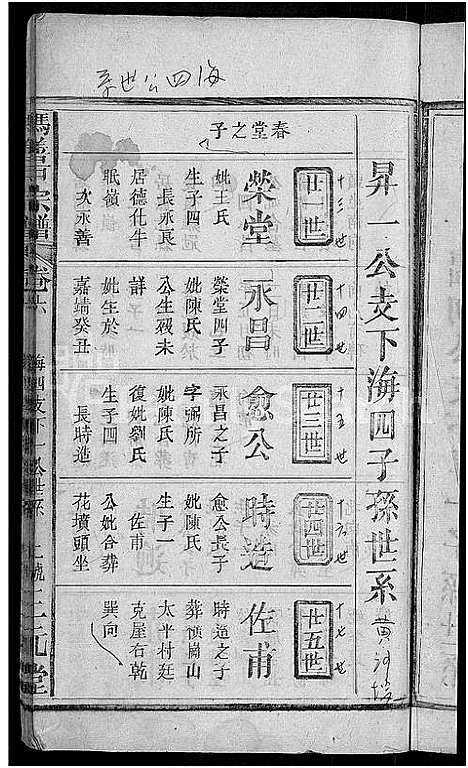 系世公四海
昇一公支下海四子孫世系
黃沙塘
十三世
廿一世
春堂之子
榮堂
妣王氏
生子四
長永良
居德化牛
眠嶺
次永善
十四世
廿二世
永昌
榮堂四子
妣陳氏
公生歿未
詳
妣生於
嘉靖癸丑
十五世
廿三世
愈公
永昌之子
字弼所
妣陳氏
復妣劉氏
生子四
長時造
十六世
廿四世
時造
愈公長子
妣陳氏
生子一
佐甫
公妣合葬
花墳頭坐
十七世
廿五世
佐甫
時造之子
葬橫崗山
太平村廷
克屋右乾
巽向
宗譜
卷六
海四支下一公世系
三元堂